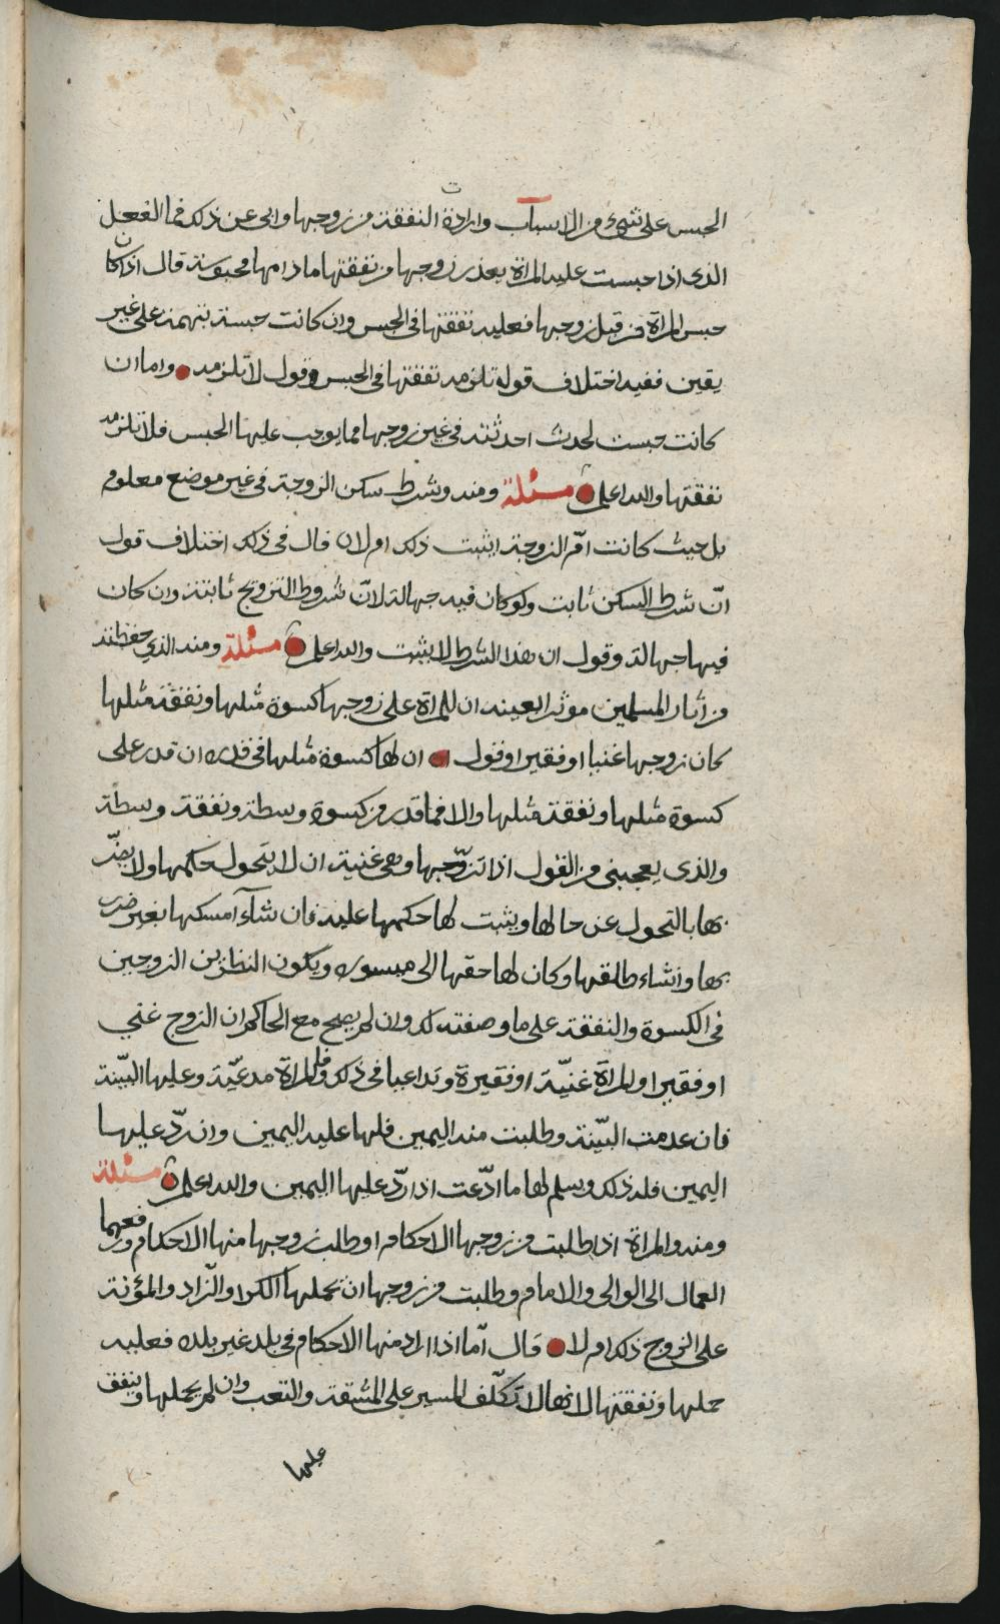 الحبس على شيء من الاسباب وارادة النفقة من زوجها وابى عن ذلك فما الفعل
الذي اذا حبست عليه المراة يعذر زوجها من نفقتها مادامها محبوسة قال اذا كان
حبس المراة من قبل زوجها فعليه نفقتها في الحبس وان كانت حبسة بتهمة على غير
يقين ففيه اختلاف قول تلزمه نفقتها في الحبس وقول لا تلزمه واما ان
كانت حبست لحدث احدثته في غير زوجها مما يوجب عليها الحبس فلا تلزمه
نفقتها والله اعلم مسئلة ومنه وشرط سكن الزوجة في غير موضع معلوم
بل حيث كانت ام الزوجة ايثبت ذلك ام لا قال في ذلك اختلاف قول
انّ شرط السكن ثابت ولو كان فيه جهالة لانّ شروط التزويج ثابتة وان كان
فيها جهالة وقول ان هذا الشرط لا يثبت والله اعلم مسئلة ومنه الذي حفظته
من اثار المسلمين موثر ابعينه ان للمراة على زوجها كسوة مثلها ونفقة مثلها
كان زوجها غنيا او فقيرا وقول ان لها كسوة مثلها في قدره ان قدر على
كسوة مثلها ونفقة مثلها والا فما قدر من كسوة وسطة ونفقة وسطة
والذي يعجبني من القول اذا تزوّجها وهي غنية ان لا يتحول حكمها ولا يضرّ
بها بالتحول عن حالها ويثبت لها حكمها عليه فان شآء امسكها بغير ضرر
بها وانشاء طلقها وكان لها حقها الى ميسوره ويكون النظر بين الزوجين
في الكسوة والنفقة على ما وصفته لك وان لم يصح مع الحاكم ان الزوج غني
او فقير او المراة غنيّة او فقيرة وتداعيا في ذلك فالمراة مدعيّة وعليها البيّنة
فان عدمت البيّنة وطلبت منه اليمين فلها عليه اليمين وان ردّ عليها
اليمين فله ذلك ويسلم لها ما ادّعت اذا ردّ عليها اليمين والله اعلم مسئلة
ومنه والمراة اذا طلبت من زوجها الاحكام او طلب زوجها منها الاحكام ورفعهما
العمال الى الوالي والامام وطلبت من زوجها ان يحملها الكرا والزاد والمؤنة
على الزوج ذلك ام لا قال أمّا اذا اراد منها الاحكام في بلد غير بلده فعليه
حملها ونفقتها لانها لا تكلّف المسير على المشقة والتعب وان لم يحملها وينفق
عليها